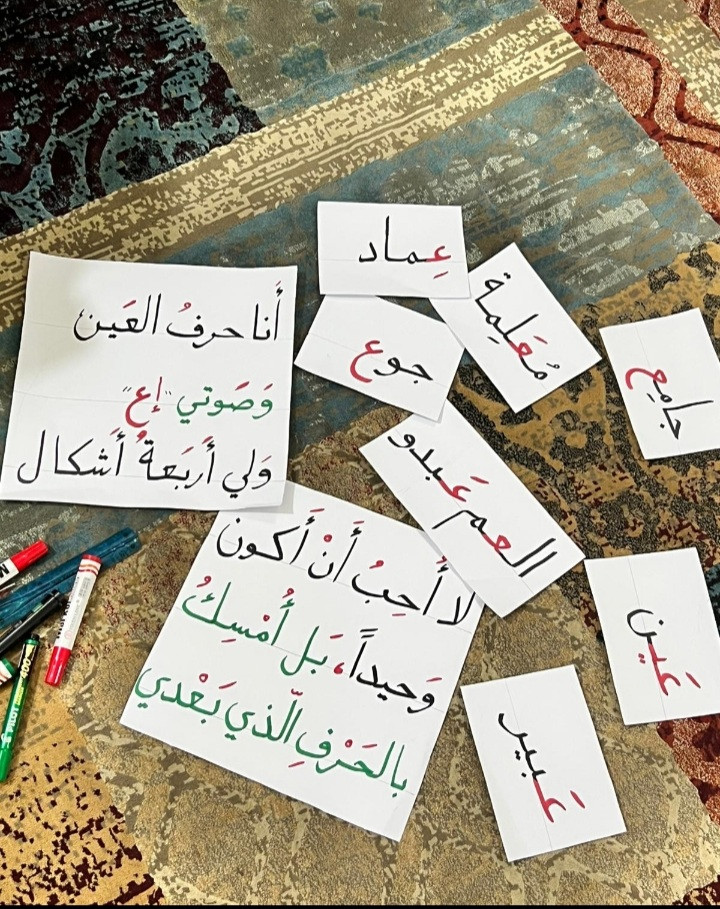 أَنا حرفُ العَين
وَصَوتي "إع"
وَلي أَربَعةُ أَشكال
عِماد
مُعَلِمة
جوع
جامِع
العم عَبدو
لا أُحِبُ أَنْ أَكون
وَحيداً، بَل أُمْسِكُ
بالحَرْفِ الّذي بَعْدي
عَين
عَبير
PILOT
400